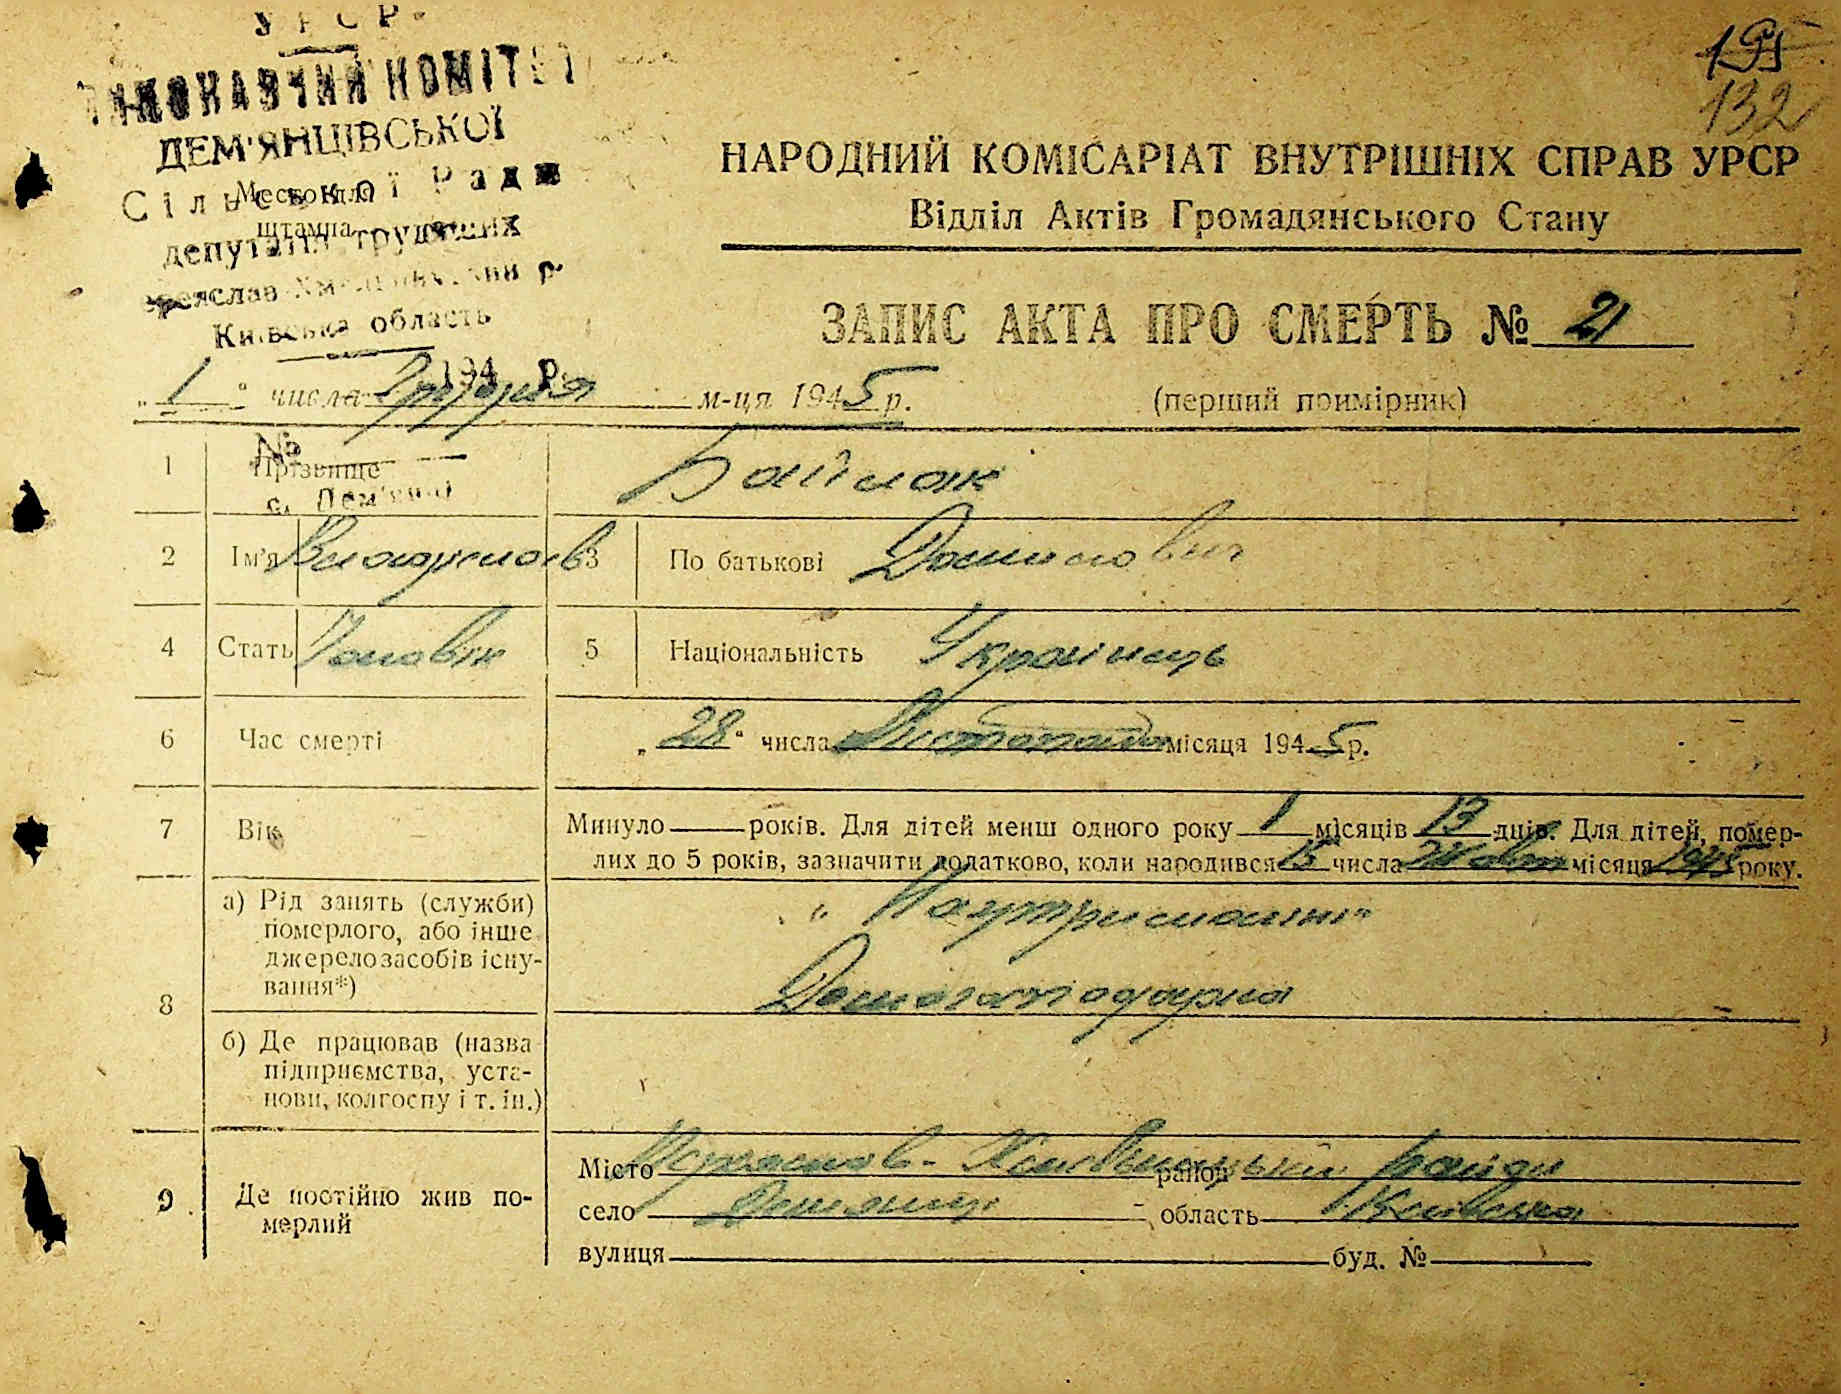 УРСР
ВИКОНАВЧИЙ КОМІТЕТ
ДЕМ'ЯНЦІВСЬКОЇ
Сільської Ради
Место для
штампа
депутатів трудящих
Київська область
194 р.
195
132
НАРОДНИЙ КОМІСАРІАТ ВНУТРІШНІХ СПРАВ УРСР
Відділ Актів Громадянського Стану
ЗАПИС АКТА ПРО СМЕРТЬ № 21
„1“ числа Грудня м-ця 1945 р.
(перший примірник)
№
1 Прізвище
с. Дем'янці
2 Ім'я Владислав 3 По батькові
4 Стать Чоловік 5 Національність Українець
6 Час смерті „28“ числа Листопада місяця 1945 р.
7 Вік Минуло — років. Для дітей менш одного року 1 місяців 13 днів. Для дітей, помер-
лих до 5 років, зазначити додатково, коли народився 15 числа Жовтн місяця 1945 року.
8 а) Рід занять (служби)
померлого, або інше
джерело засобів існу-
вання*)
„На утриманні“
Домогосподарка
б) Де працював (назва
підприємства, уста-
нови, колгоспу і т. ін.)
9 Де постійно жив по-
мерлий
Місто Переяслав-Хмельницький район
село Демянці область Київська
вулиця буд. №